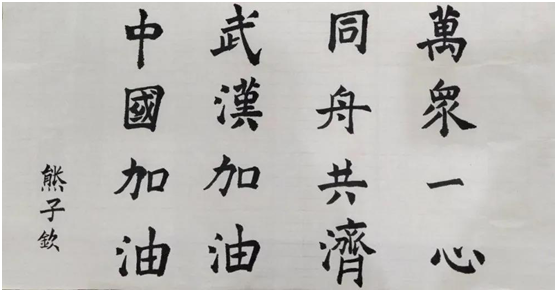 萬眾一心
同舟共濟
武漢加油
中國加油
熊子欽